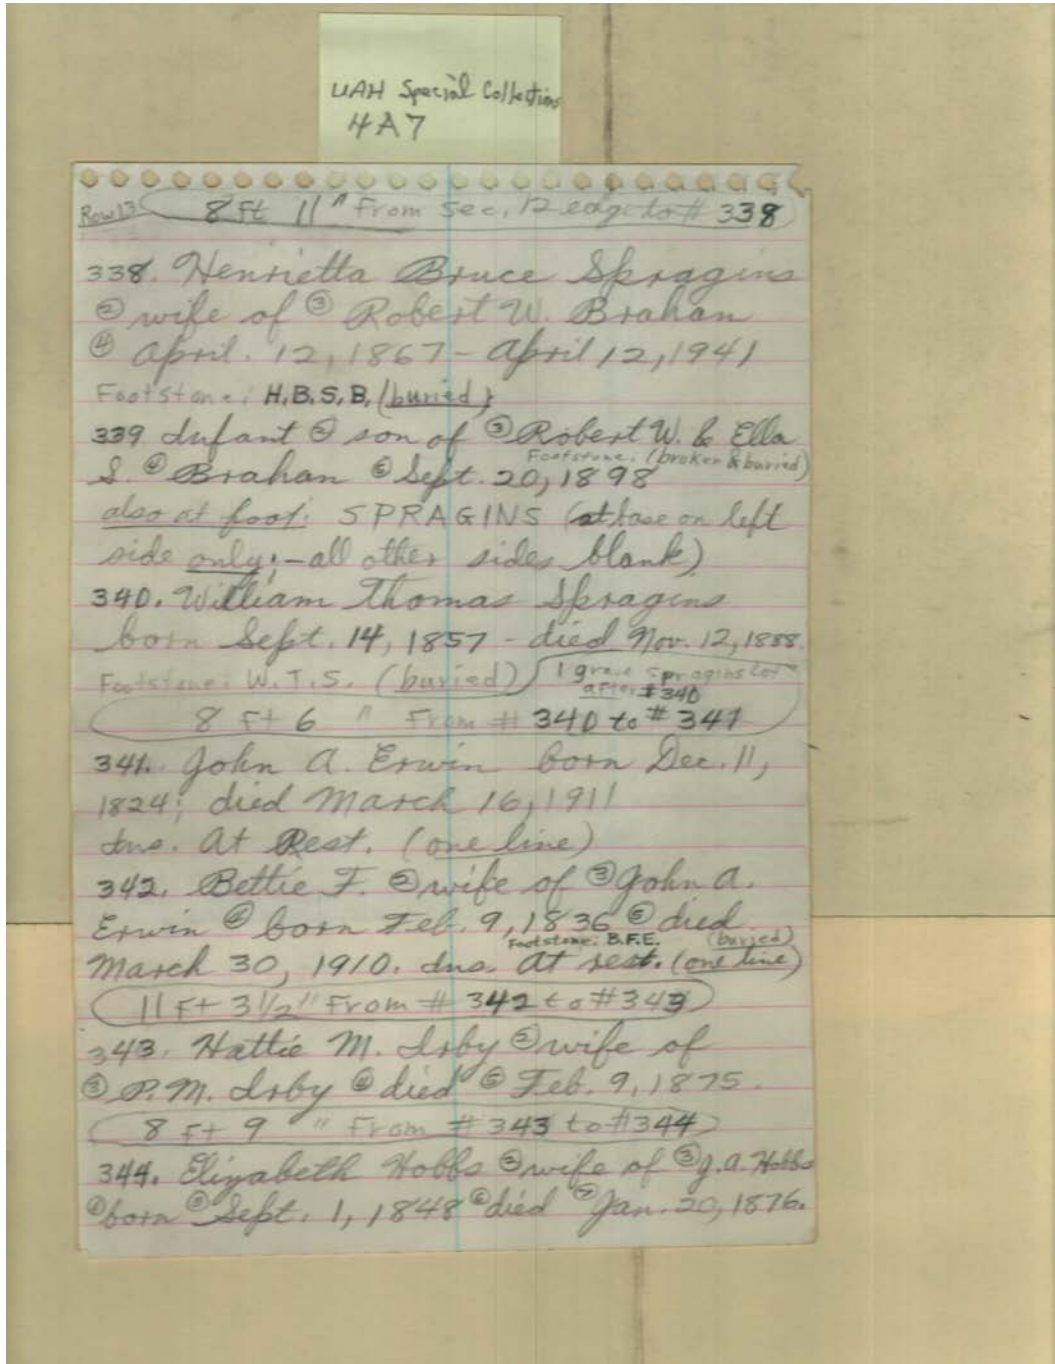 UAH Special Collections
4A7
Row 13 8 Ft 11" From Sec. 12 edge to # 338
338. Henrietta Bruce Spragins
② wife of ③ Robert W. Brahan
④ April. 12, 1867 - April 12, 1941
Footstone: H.B.S.B. (buried)
339 Infant ② son of ③ Robert W. & Ella
Footstone. (broken & buried)
S. ④ Brahan ⑤ Sept. 20, 1898
also at foot: SPRAGINS (at base on left
side only; - all other sides blank)
340. William Thomas Spragins
born Sept. 14, 1857 - died Nov. 12, 1888.
Footstone: W.T.S. (buried) 1 grave Spragins Lot
after # 340
8 Ft 6 " From # 340 to # 341
341. John A. Erwin born Dec. 11,
1824; died March 16, 1911
Ins. At Rest. (one line)
342. Bettie F. ② wife of ③ John A.
Erwin ④ born Feb. 9, 1836 ⑤ died
Footstone: B.F.E. (buried)
March 30, 1910. Ins. At rest. (one line)
11 Ft 3 1/2" From # 342 to # 343
343. Hattie M. Irby ② wife of
③ P.M. Irby ④ died ⑤ Feb. 9, 1875.
8 Ft 9 " From # 343 to # 344
344. Elizabeth Hobbs ② wife of ③ J.A. Hobbs
④ born ⑤ Sept. 1, 1848 ⑥ died ⑦ Jan. 20, 1876.